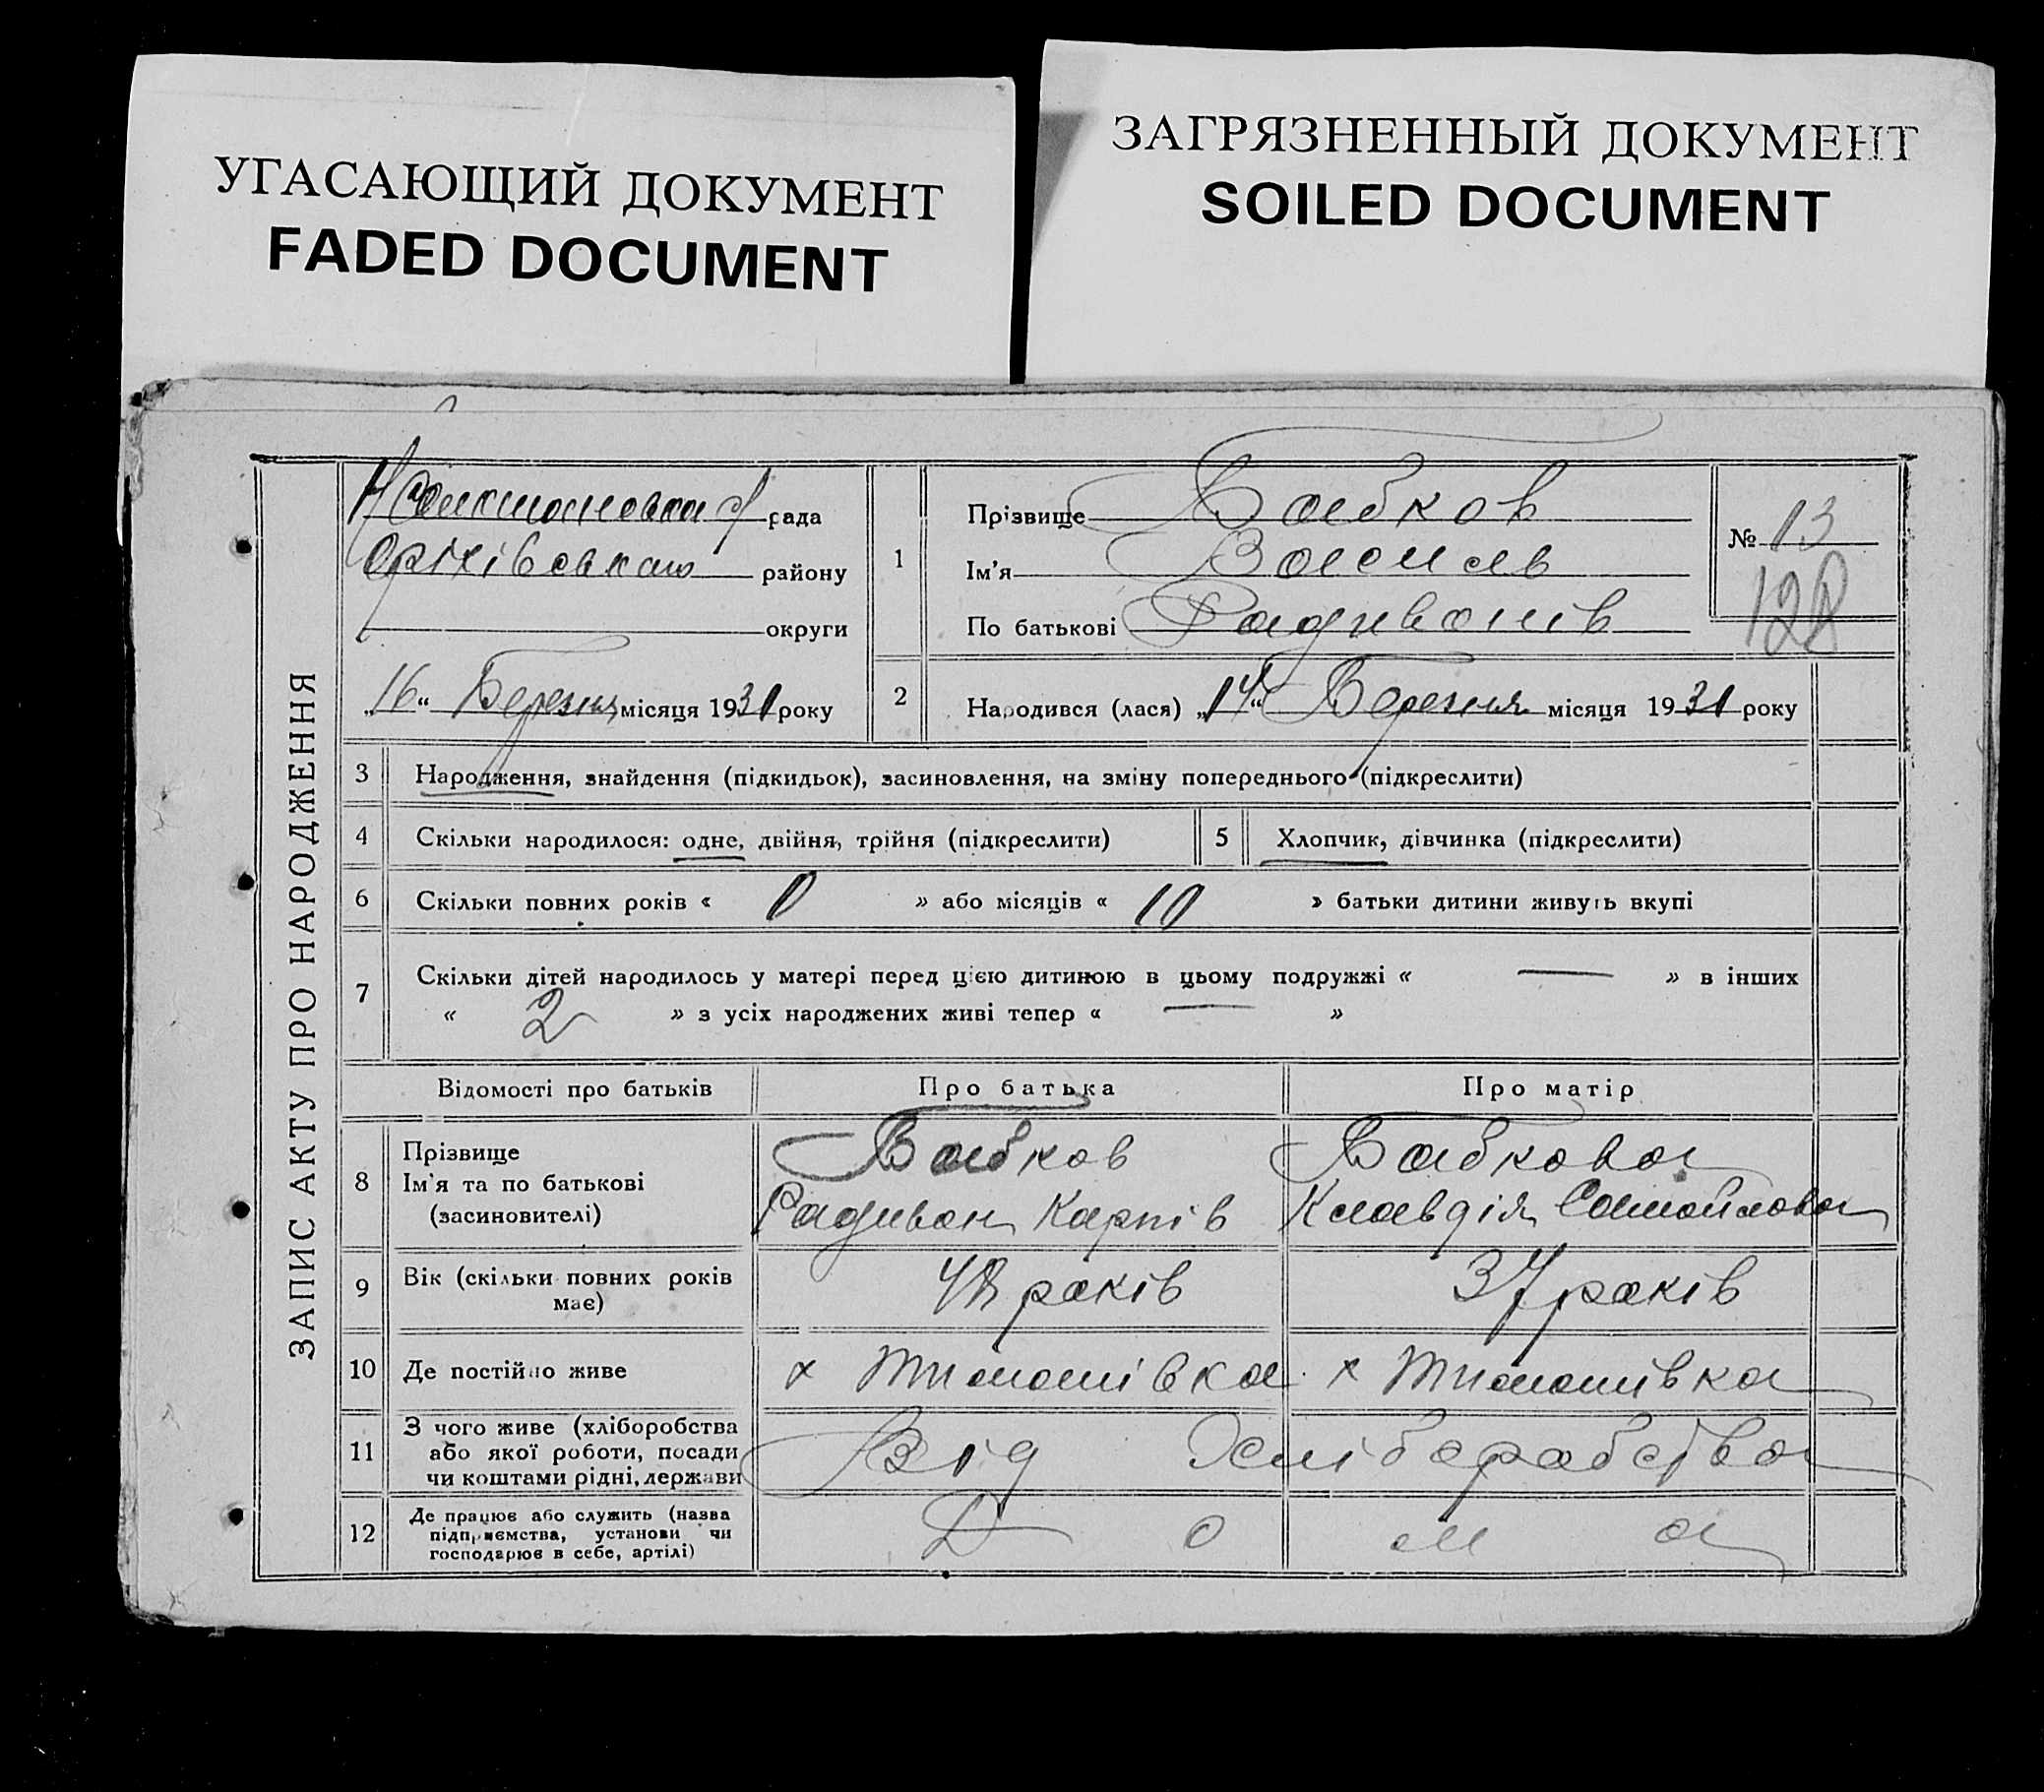 УГАСАЮЩИЙ ДОКУМЕНТ
FADED DOCUMENT
ЗАГРЯЗНЕННЫЙ ДОКУМЕНТ
SOILED DOCUMENT
ЗАПИС АКТУ ПРО НАРОДЖЕННЯ
рада
Оріхівського району
округи
„16“ Березня місяця 1931 року
1
Прізвище Бабков
Ім'я Василь
По батькові Радивонів
№ 13
128
2
Народився (лася) „14“ Березня місяця 1931 року
3 Народження, знайдення (підкидьок), засиновлення, на зміну попереднього (підкреслити)
4 Скільки народилося: одне, двійня, трійня (підкреслити)
5 Хлопчик, дівчинка (підкреслити)
6 Скільки повних років « 0 » або місяців « 10 » батьки дитини живуть вкупі
7 Скільки дітей народилось у матері перед цією дитиною в цьому подружжі « — » в інших
« 2 » з усіх народжених живі тепер « — »
Відомості про батьків Про батька Про матір
8 Прізвище
Ім'я та по батькові
(засиновителі)
Бабков
Радивон Карпів
Бабкова
Клавдія Самойлова
9 Вік (скільки повних років
має)
48 років 37 років
10 Де постійно живе х Тимошівка х Тимошівка
11 З чого живе (хліборобства
або якої роботи, посади
чи коштами рідні, держави
Від Хліборобства
12 Де працює або служить (назва
підприємства, установи чи
господарює в себе, артілі)
Дома